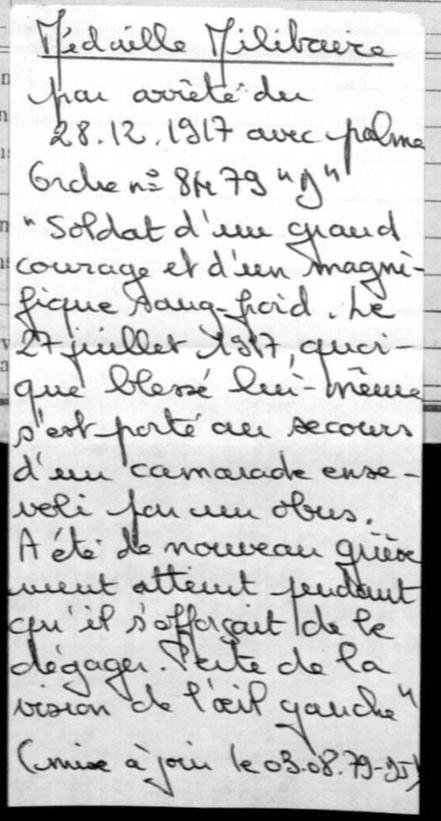 Médaille Militaire
par arrêté du
28.12.1917 avec palme
Ordre n° 8479 "D"
"Soldat d'un grand
courage et d'un magni-
fique sang-froid. Le
27 juillet 1917, quoi-
que blessé lui-même
s'est porté au secours
d'un camarade ense-
veli par un obus.
A été de nouveau griève
ment atteint pendant
qu'il s'efforçait de le
dégager. Perte de la
vision de l'œil gauche"
(mise à jour le 03.08.79-